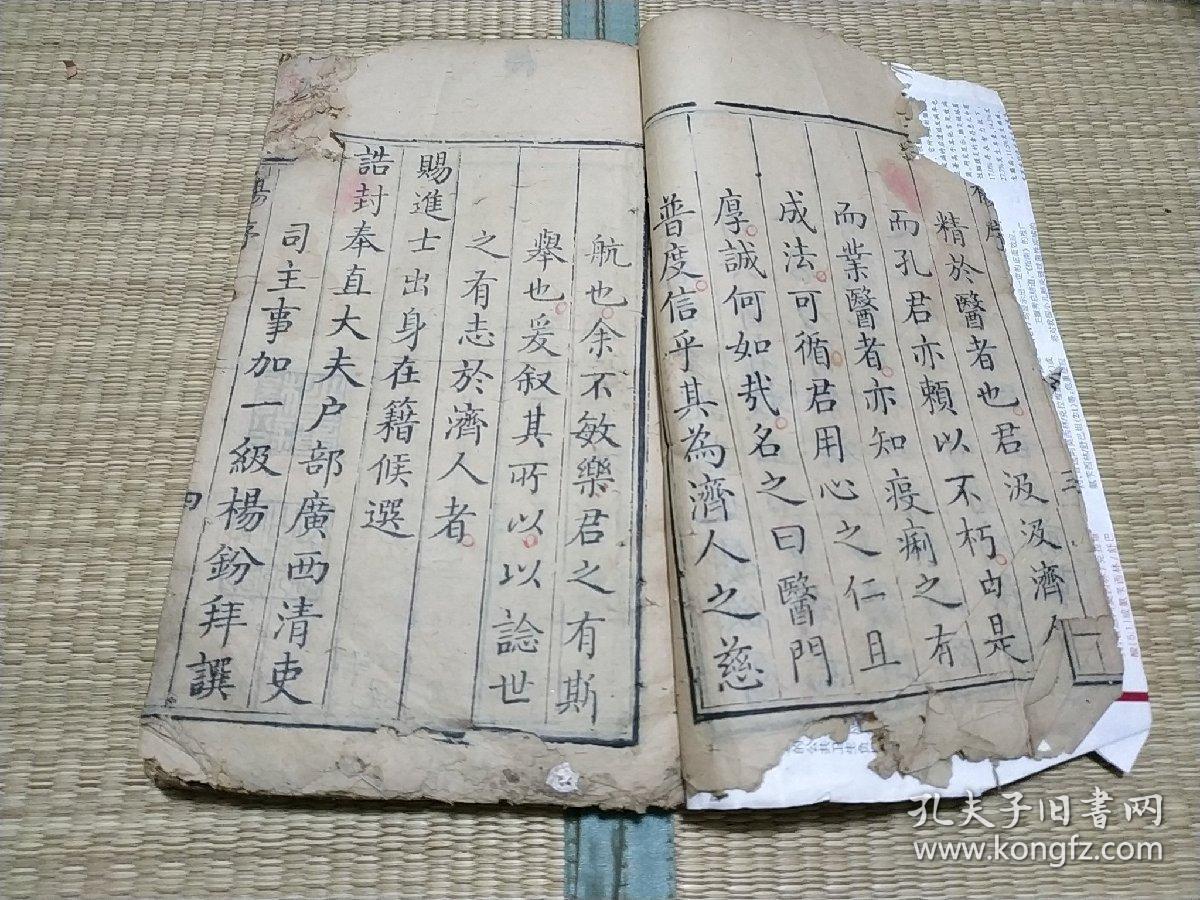 精於醫者也君汲汲濟人
而孔君亦賴以不朽由是
而業醫者亦知痘痢之有
成法可循君用心之仁且
厚誠何如哉名之曰醫門
普度信乎其為濟人之慈
航也余不敏樂君之有斯
舉也爰叙其所以以諗世
之有志於濟人者
賜進士出身在籍候選
誥封奉直大夫户部廣西清吏
司主事加一級楊鈖拜譔
序
三
楊序
四
孔夫子旧書网
www.kongfz.com